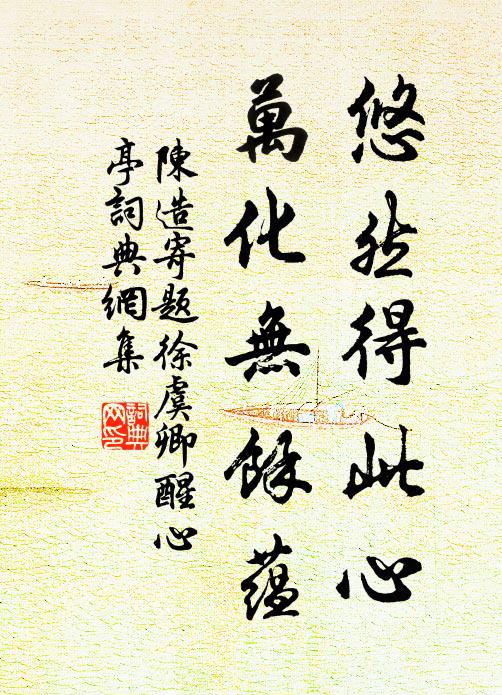 悠然得此心
萬化無餘蘊
陳造寄题徐虞卿醒心
亭詞典網集
詞典
网印